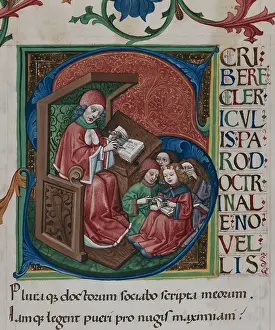 S
CRI
BERE
CLER
ICVL
IS PA
ROD
OCTR
INAL
E NO
VEL
LIS
Pluraqꝫ doctorum sociabo scripta meorum.
Iamqꝫ legent pueri pro nugis maximiani.